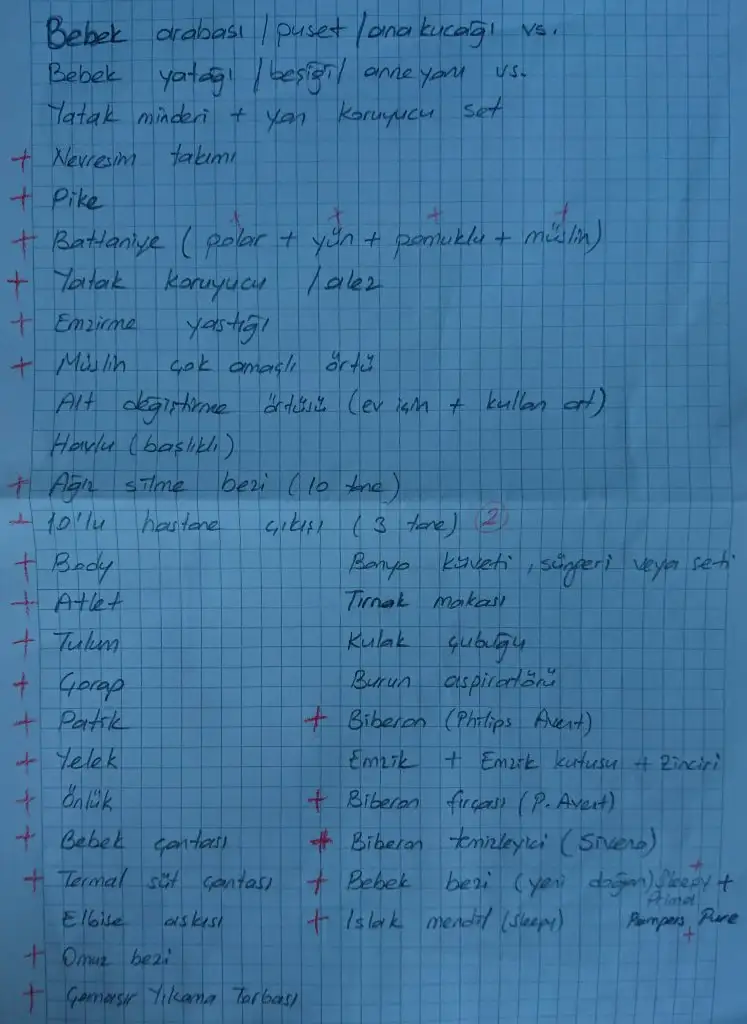 Bebek arabası / puset / ana kucağı vs.
Bebek yatağı / beşiği / anne yanı vs.
Yatak minderi + yan koruyucu set
+ Nevresim takımı
+ Pike
+ Battaniye ( polar + yün + pamuklu + müslin)
+ Yatak koruyucu / alez
+ Emzirme yastığı
+ Müslin çok amaçlı örtü
Alt değiştirme örtüsü (ev için + kullan at)
Havlu (başlıklı)
+ Ağız silme bezi (10 tane)
+ 10'lu hastane çıkışı (3 tane) 2
+ Body
+ Atlet
+ Tulum
+ Çorap
+ Patik
+ Yelek
+ Önlük
+ Bebek çantası
+ Termal süt çantası
Elbise askısı
+ Omuz bezi
+ Çamaşır Yıkama Torbası
Banyo küveti, süngeri veya seti
Tırnak makası
Kulak çubuğu
Burun aspiratörü
+ Biberon (Philips Avent)
Emzik + Emzik kutusu + Zinciri
+ Biberon fırçası (P. Avent)
+ Biberon temizleyici (Sivera)
+ Bebek bezi (yeni doğan) Sleepy +
+ Islak mendil (Sleepy)
Pampers Pure